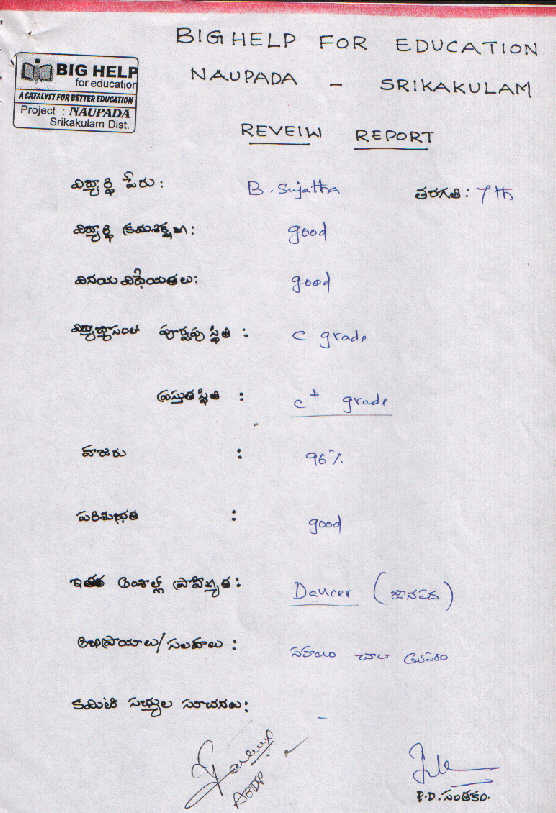 BIG HELP FOR EDUCATION
NAUPADA - SRIKAKULAM
BIG HELP
for education
A CATALYST FOR BETTER EDUCATION
Project : NAUPADA
Srikakulam Dist.
REVEIW REPORT
విద్యార్థి పేరు : B. Sujatha తరగతి : 7th
విద్యార్థి క్రమశిక్షణ : good
వినయ విధేయతలు : good
విద్యాభ్యాసంలో పూర్వపు స్థితి : C grade
ప్రస్తుత స్థితి : C+ grade
హాజరు : 96%
పరిశుభ్రత : good
ఇతర అంశాల్లో ప్రావీణ్యత : Dancer (జానపద)
అభిప్రాయాలు/సలహాలు : సహాయం చాలా అవసరం
కమిటీ సభ్యుల సూచనలు : -
P.D. సంతకం.